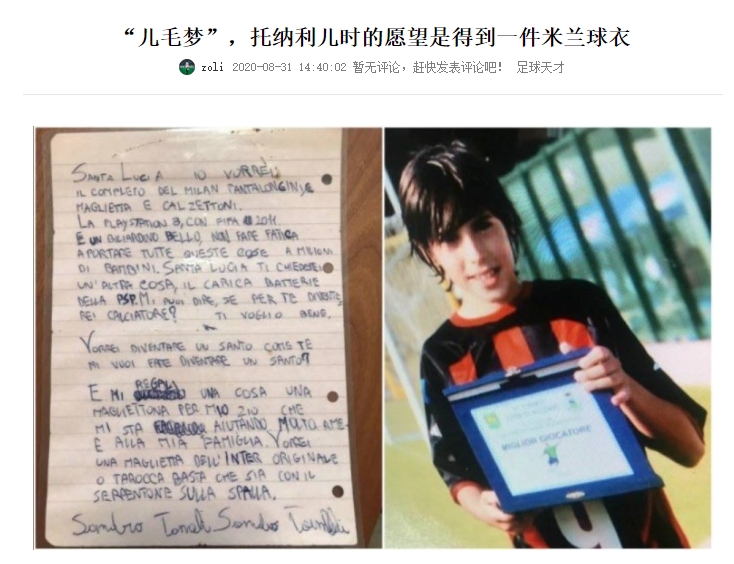 “儿毛梦”，托纳利儿时的愿望是得到一件米兰球衣
zoli 2020-08-31 14:40:02 暂无评论，赶快发表评论吧！ 足球天才
SANTA LUCIA IO VORREI
IL COMPLETO DEL MILAN PANTALONCINI, E
MAGLIETTA E CALZETTONI.
LA PLAYSTATION 3, CON FIFA 2011.
E UN BIGLIARDINO BELLO, NON FARE FATICA
A PORTARE TUTTE QUESTE COSE A MILIONI
DI BAMBINI. SANTA LUCIA TI CHIEDEREI
UN'ALTRA COSA, IL CARICA BATTERIE
DELLA PSP. MI PUOI DIRE, SE PER TE DIVENTE
REI CALCIATORE? TI VOGLIO BENE.
VORREI DIVENTARE UN SANTO COME TE
MI VUOI FARE DIVENTARE UN SANTO?
REGALI
E MI UNA COSA UNA
MAGLIETTONA PER MIO ZIO CHE
MI STA AIUTANDO MOLTO A ME
E ALLA MIA FAMIGLIA. VORREI
UNA MAGLIETTA DELL'INTER ORIGINALE
O TAROCCA BASTA CHE SIA CON IL
SERPENTONE SULLA SPALLA.
Sandro Tonali Sandro Tonali
MIGLIOR GIOCATORE